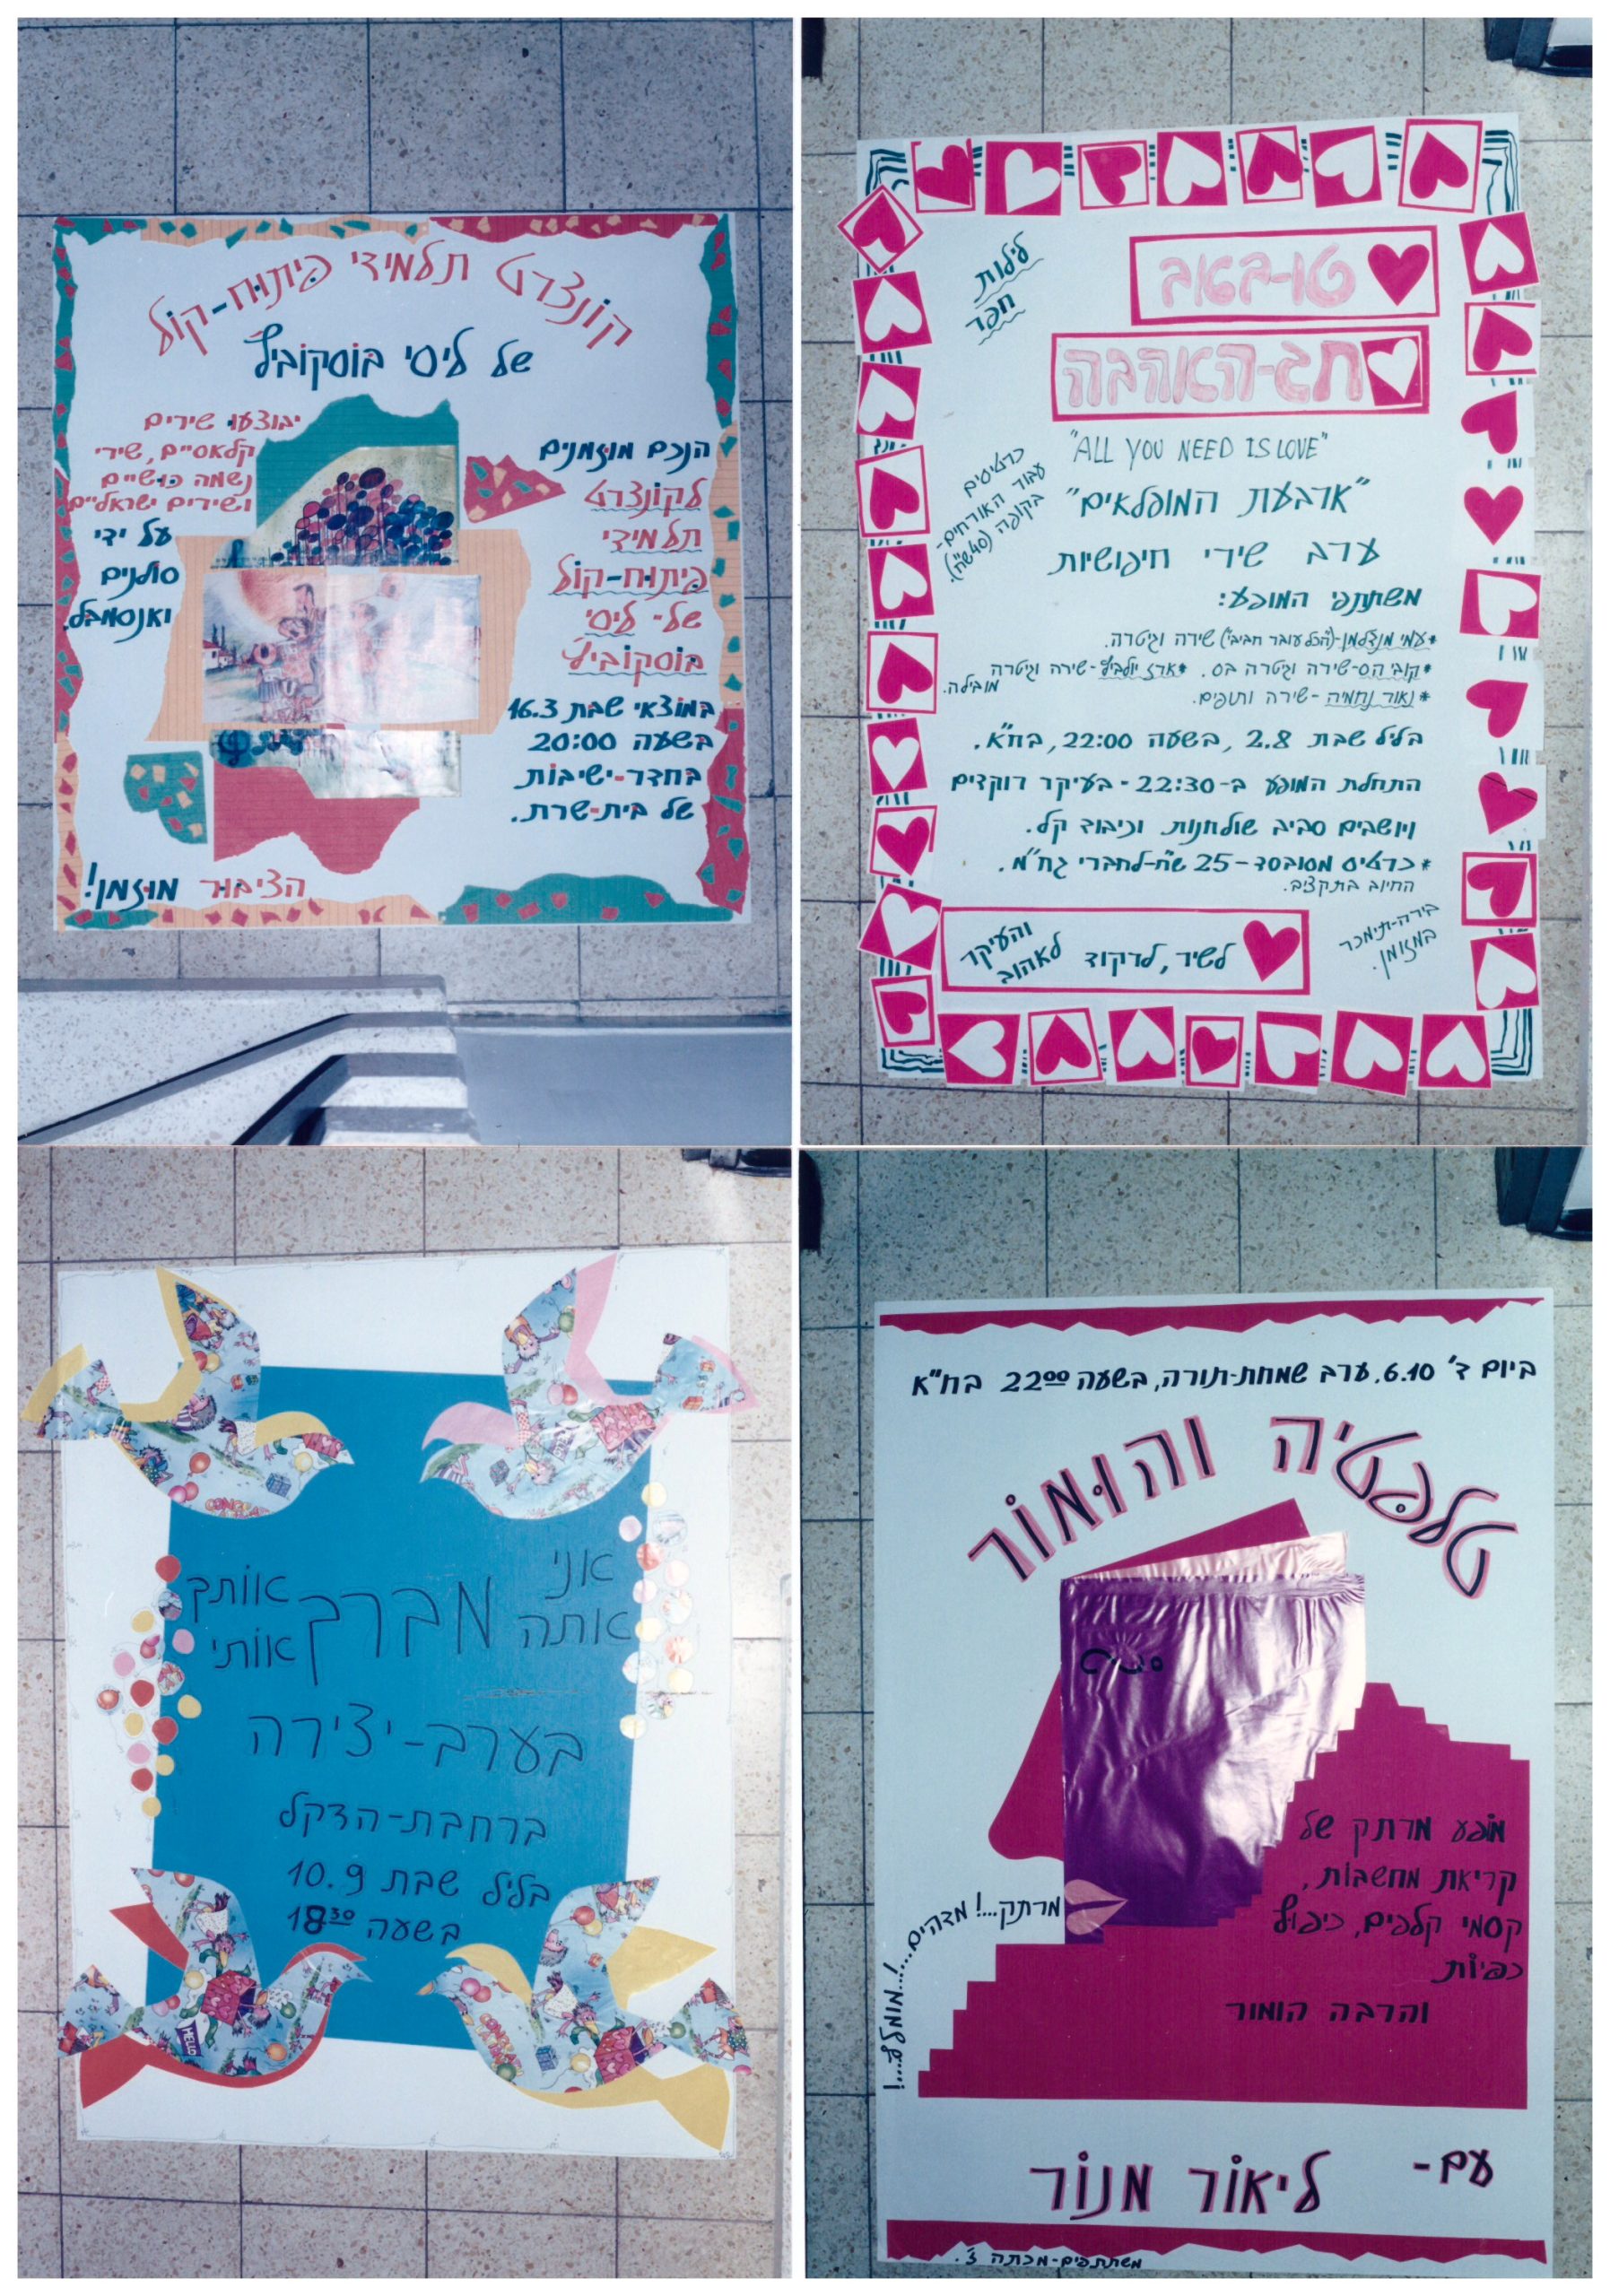 קונצרט תלמידי פיתוח-קול
של ליסי בוסקוביץ
הנכם מוזמנים
לקונצרט
תלמידי
פיתוח-קול
של- ליסי
בוסקוביץ
במוצאי שבת 16.3
בשעה 20:00
בחדר-ישיבות
של בית-שרת.
יבוצעו שירים
קלאסיים, שירי
נשמה כושיים
ושירים ישראליים
על ידי
סולנים
ואנסמבל.
הציבור מוזמן!
לילות
חפר
טו-באב
חג-האהבה
"ALL YOU NEED IS LOVE"
"ארבעת המופלאים"
ערב שירי חיפושיות
כרטיסים
עבור האורחים-
בקופה (40 ש"ח).
משתתפי המופע:
*עמי מנדלמן-("הכל עובר חביבי") שירה וגיטרה.
*קובי הס-שירה וגיטרה בס. *ארז יולביץ-שירה וגיטרה מובילה.
*נאור נחמיה-שירה ותופים.
בליל שבת 2.8, בשעה 22:00, בח"א.
התחלת המופע ב-22:30-בעיקר רוקדים
ויושבים סביב שולחנות וכיבוד קל.
*כרטיס מסובסד-25 ש"ח-לחברי גח"מ.
החיוב בתקציב.
בירה-תימכר
במזומן.
לשיר, לרקוד
והעיקר
לאהוב
אני מברך אותך
אתה מברך אותי
בערב-יצירה
ברחבת-הדקל
בליל שבת 10.9
בשעה 18³⁰
ביום ד' 6.10, ערב שמחת-תורה, בשעה 22⁰⁰ בח"א
טלפטיה והומור
מופע מרתק של
קריאת מחשבות,
קסמי קלפים, כיפוף
כפיות
והרבה הומור
מרתק...! מדהים...! מומלץ...!
עם-
ליאור מנור
משתתפים-מכתה ז'.